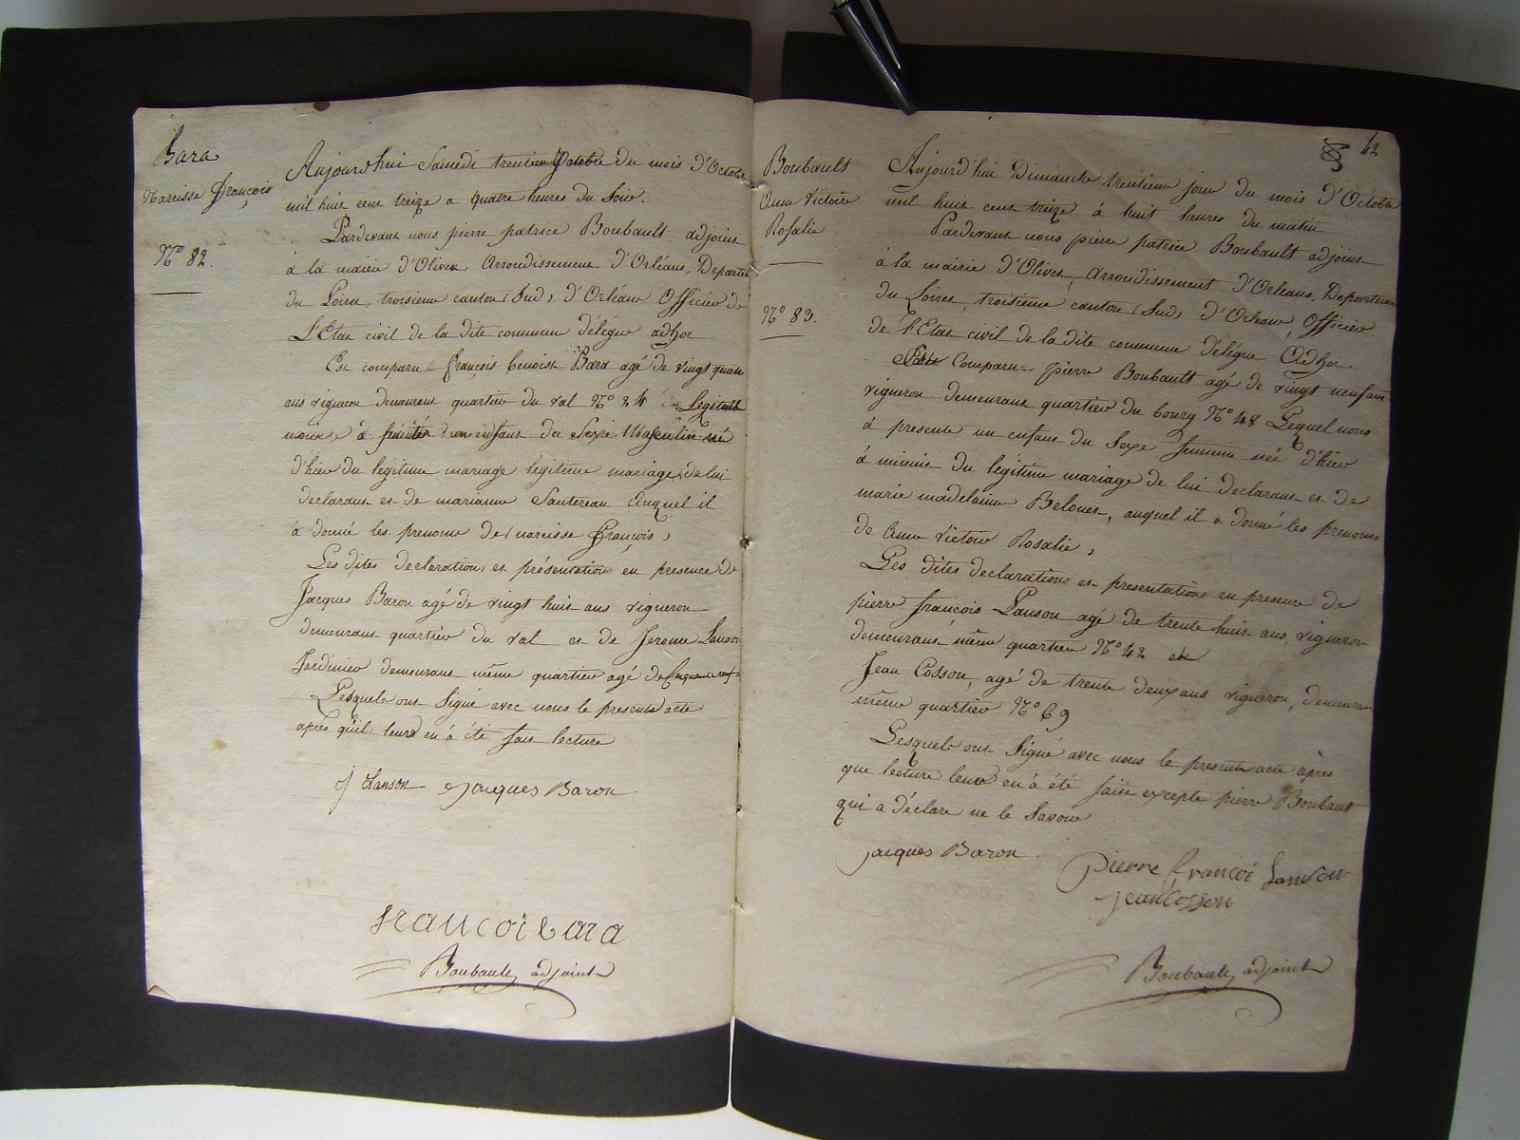 Bara
Narcisse François
N° 82.
Aujourd'hui Samedi trentieme du mois d'Octobre
mil huit cent treize a quatre heures du Soir.
Pardevant nous pierre patrice Boubault adjoint
à la mairie d'Olivet Arrondissement d'Orléans, Departt
du Loiret, troisieme canton (Sud) d'Orléans Officier de
L'Etat civil de la dite commune délégué adhoc
Est comparu françois benoist Bara agé de vingt quatre
ans vigneron demeurant quartier du val N° 24 Lequel
nous à présenté un enfant du Sexe Masculin né
d'hier du legitime mariage legitime mariage de lui
declarant et de marianne Sautereau Auquel il
à donné les prenoms de (narcisse François)
Les dites declarations et présentations en presence de
Jacques Baron agé de vingt huit ans vigneron
demeurant quartier du val et de Jerome Lanson
Jardinier demeurant même quartier agé de Cinquante neuf
Lesquels ont Signé avec nous le present acte
après qu'il leurs en à été fait lecture
j Lanson Jacques Baron
francoi bara
Boubault, adjoint
62
Boubault
Anne Victoire
Rosalie
N° 83.
Aujourd'hui Dimanche trentieme jour du mois d'Octobre
mil huit cent treize à huit heures du matin
Pardevant nous pierre patrice Boubault adjoint
à la mairie d'Olivet, Arrondissement d'Orleans, Departement
du Loiret, troisieme canton (Sud) d'Orleans, Officier
de l'Etat civil de la dite commune delégué Adhoc
Est Comparu pierre Boubault agé de vingt neuf ans
vigneron demeurant quartier du bourg N° 48 Lequel nous
à presenté un enfant du Sexe feminin née d'hier
à minuit du legitime mariage de lui declarant et de
marie madelaine Belouet, auquel il a donné les prenoms
de Anne Victoire Rosalie,
Les dites declarations et presentations en presence de
pierre françois Lanson agé de trente huit ans, vigneron
demeurant même quartier N° 42 et
Jean Cosson, agé de trente deux ans vigneron, demeurant
même quartier N° 69
Lesquels ont Signé avec nous le present acte après
que lecture leur en à été faite excepté pierre Boubault
qui a déclaré ne le Savoir
jacques Baron
pierre francoi Lanson
jean Cosson
Boubault, adjoint